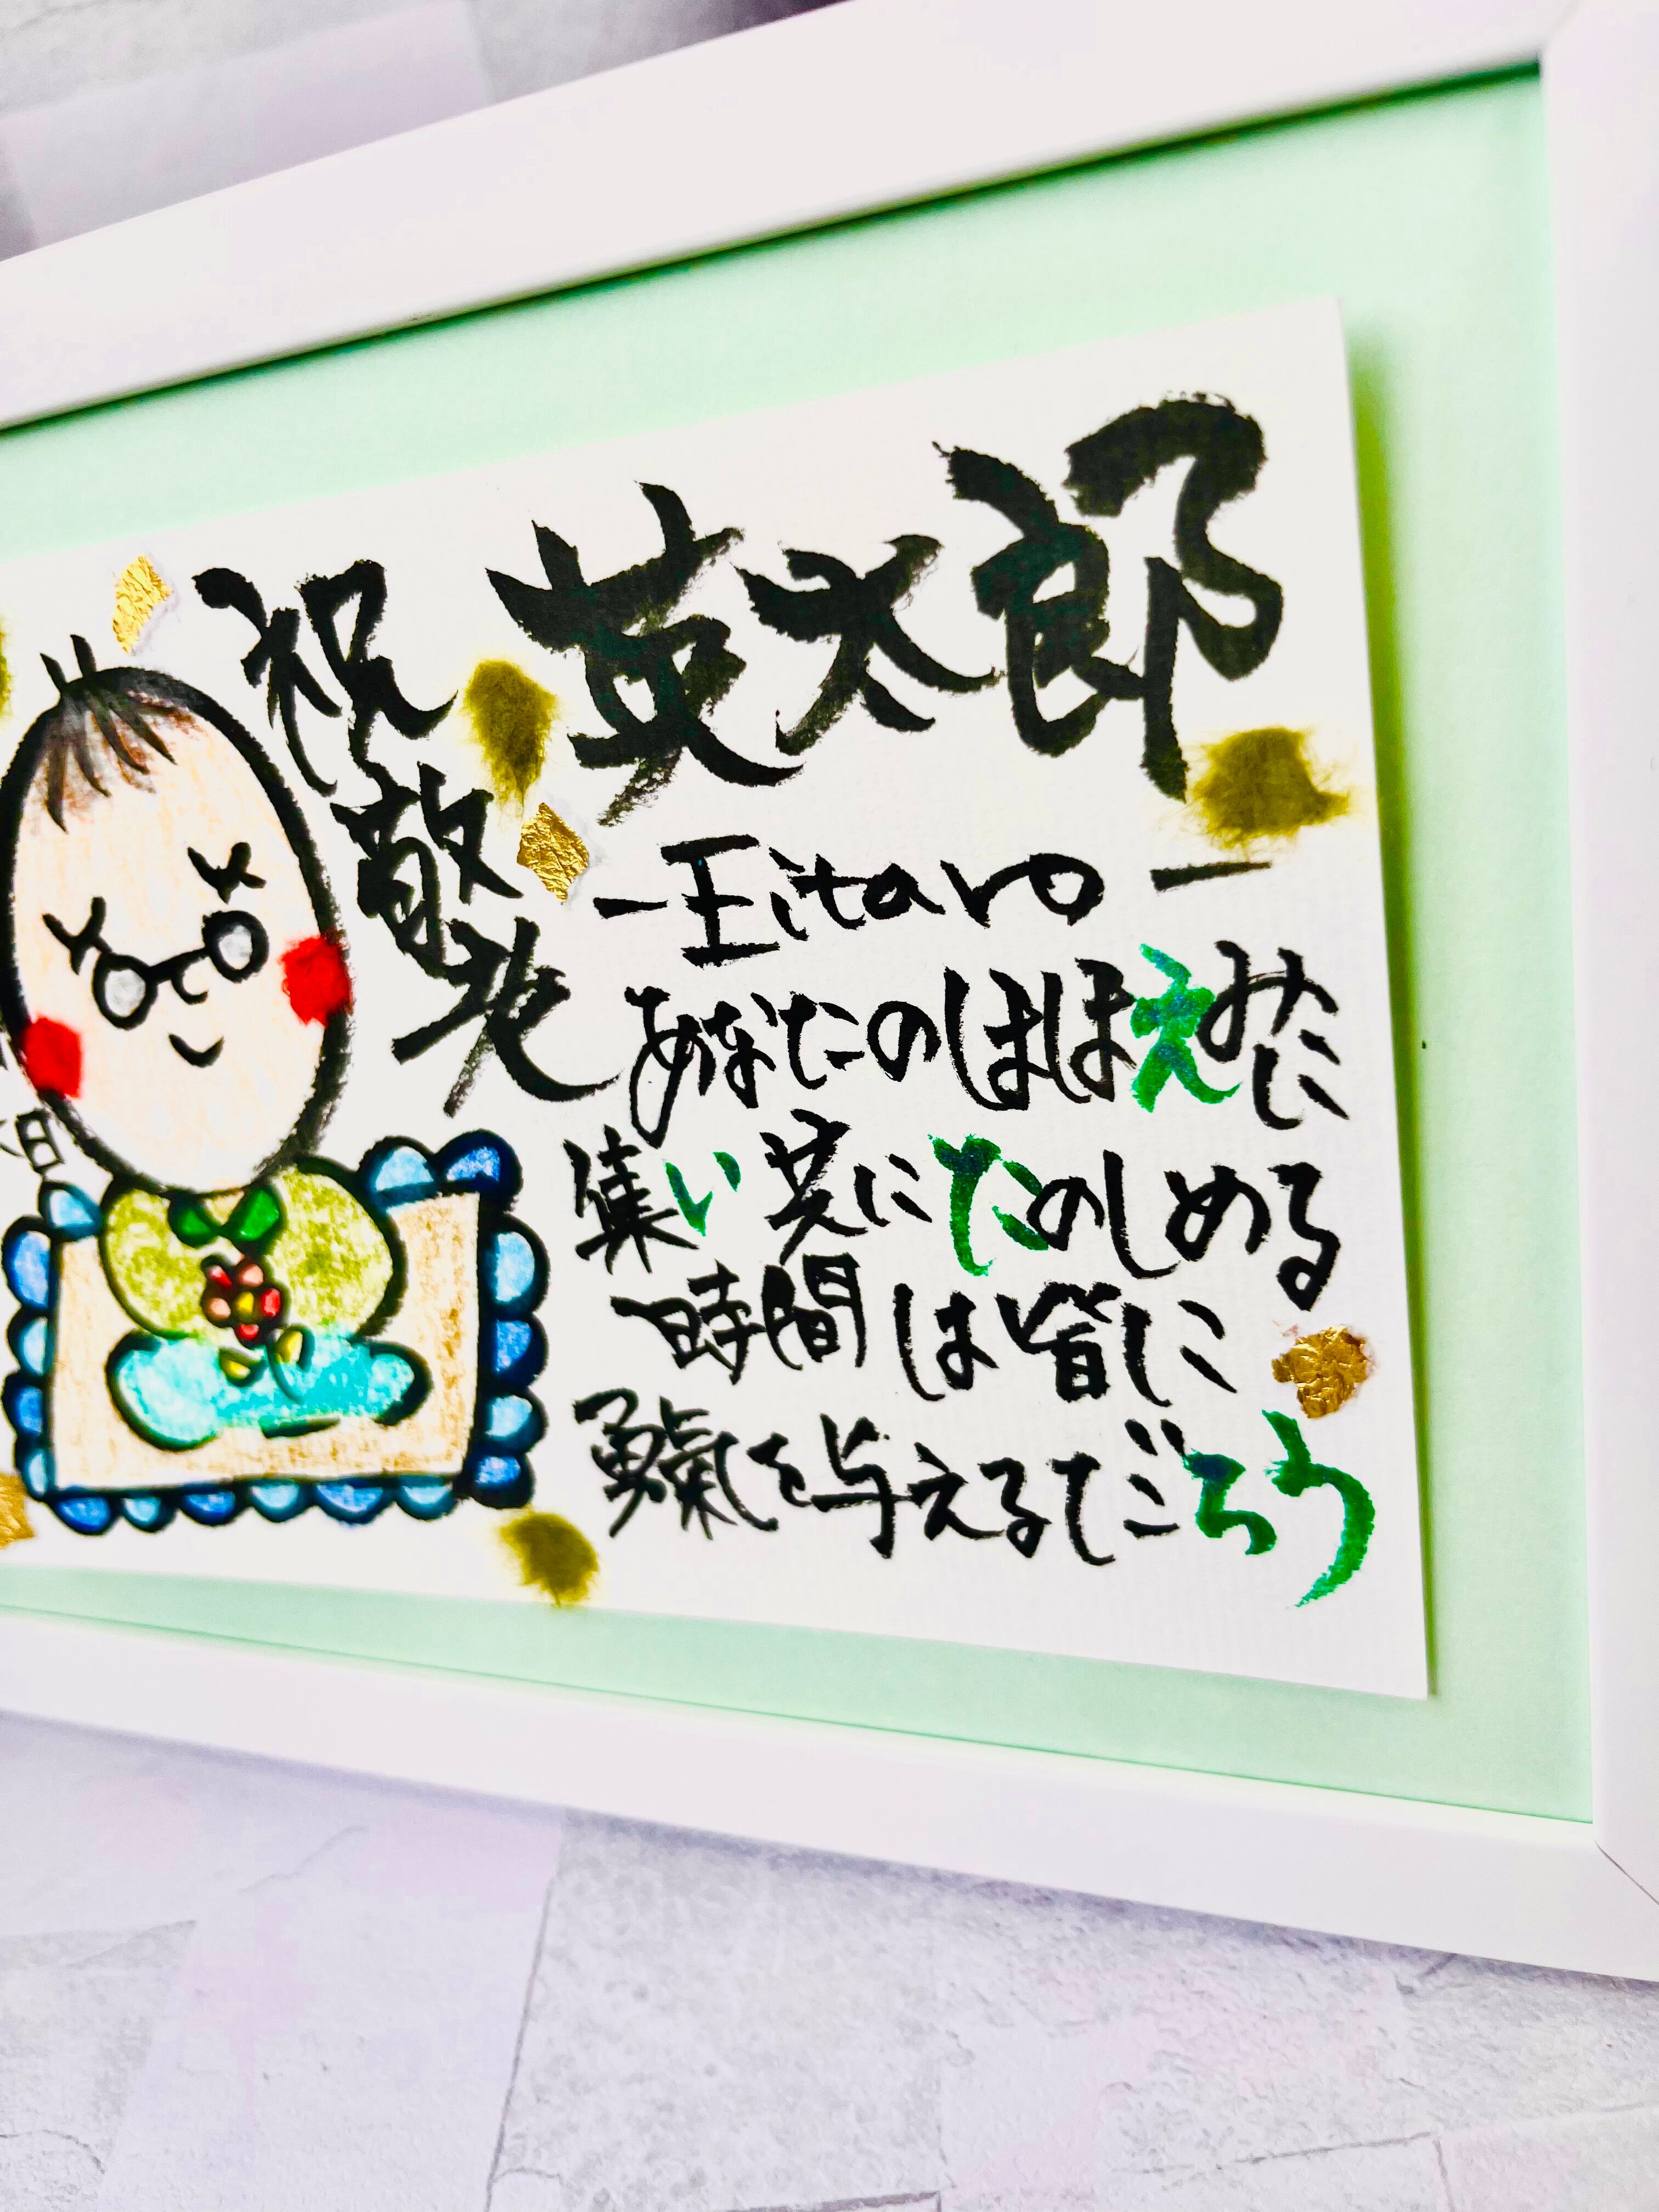 英太郎
-Eitaro-
あなたのほほえみに
集い 共にたのしめる
時間は皆に
勇氣を与えるだろう
祝
敬
老
日